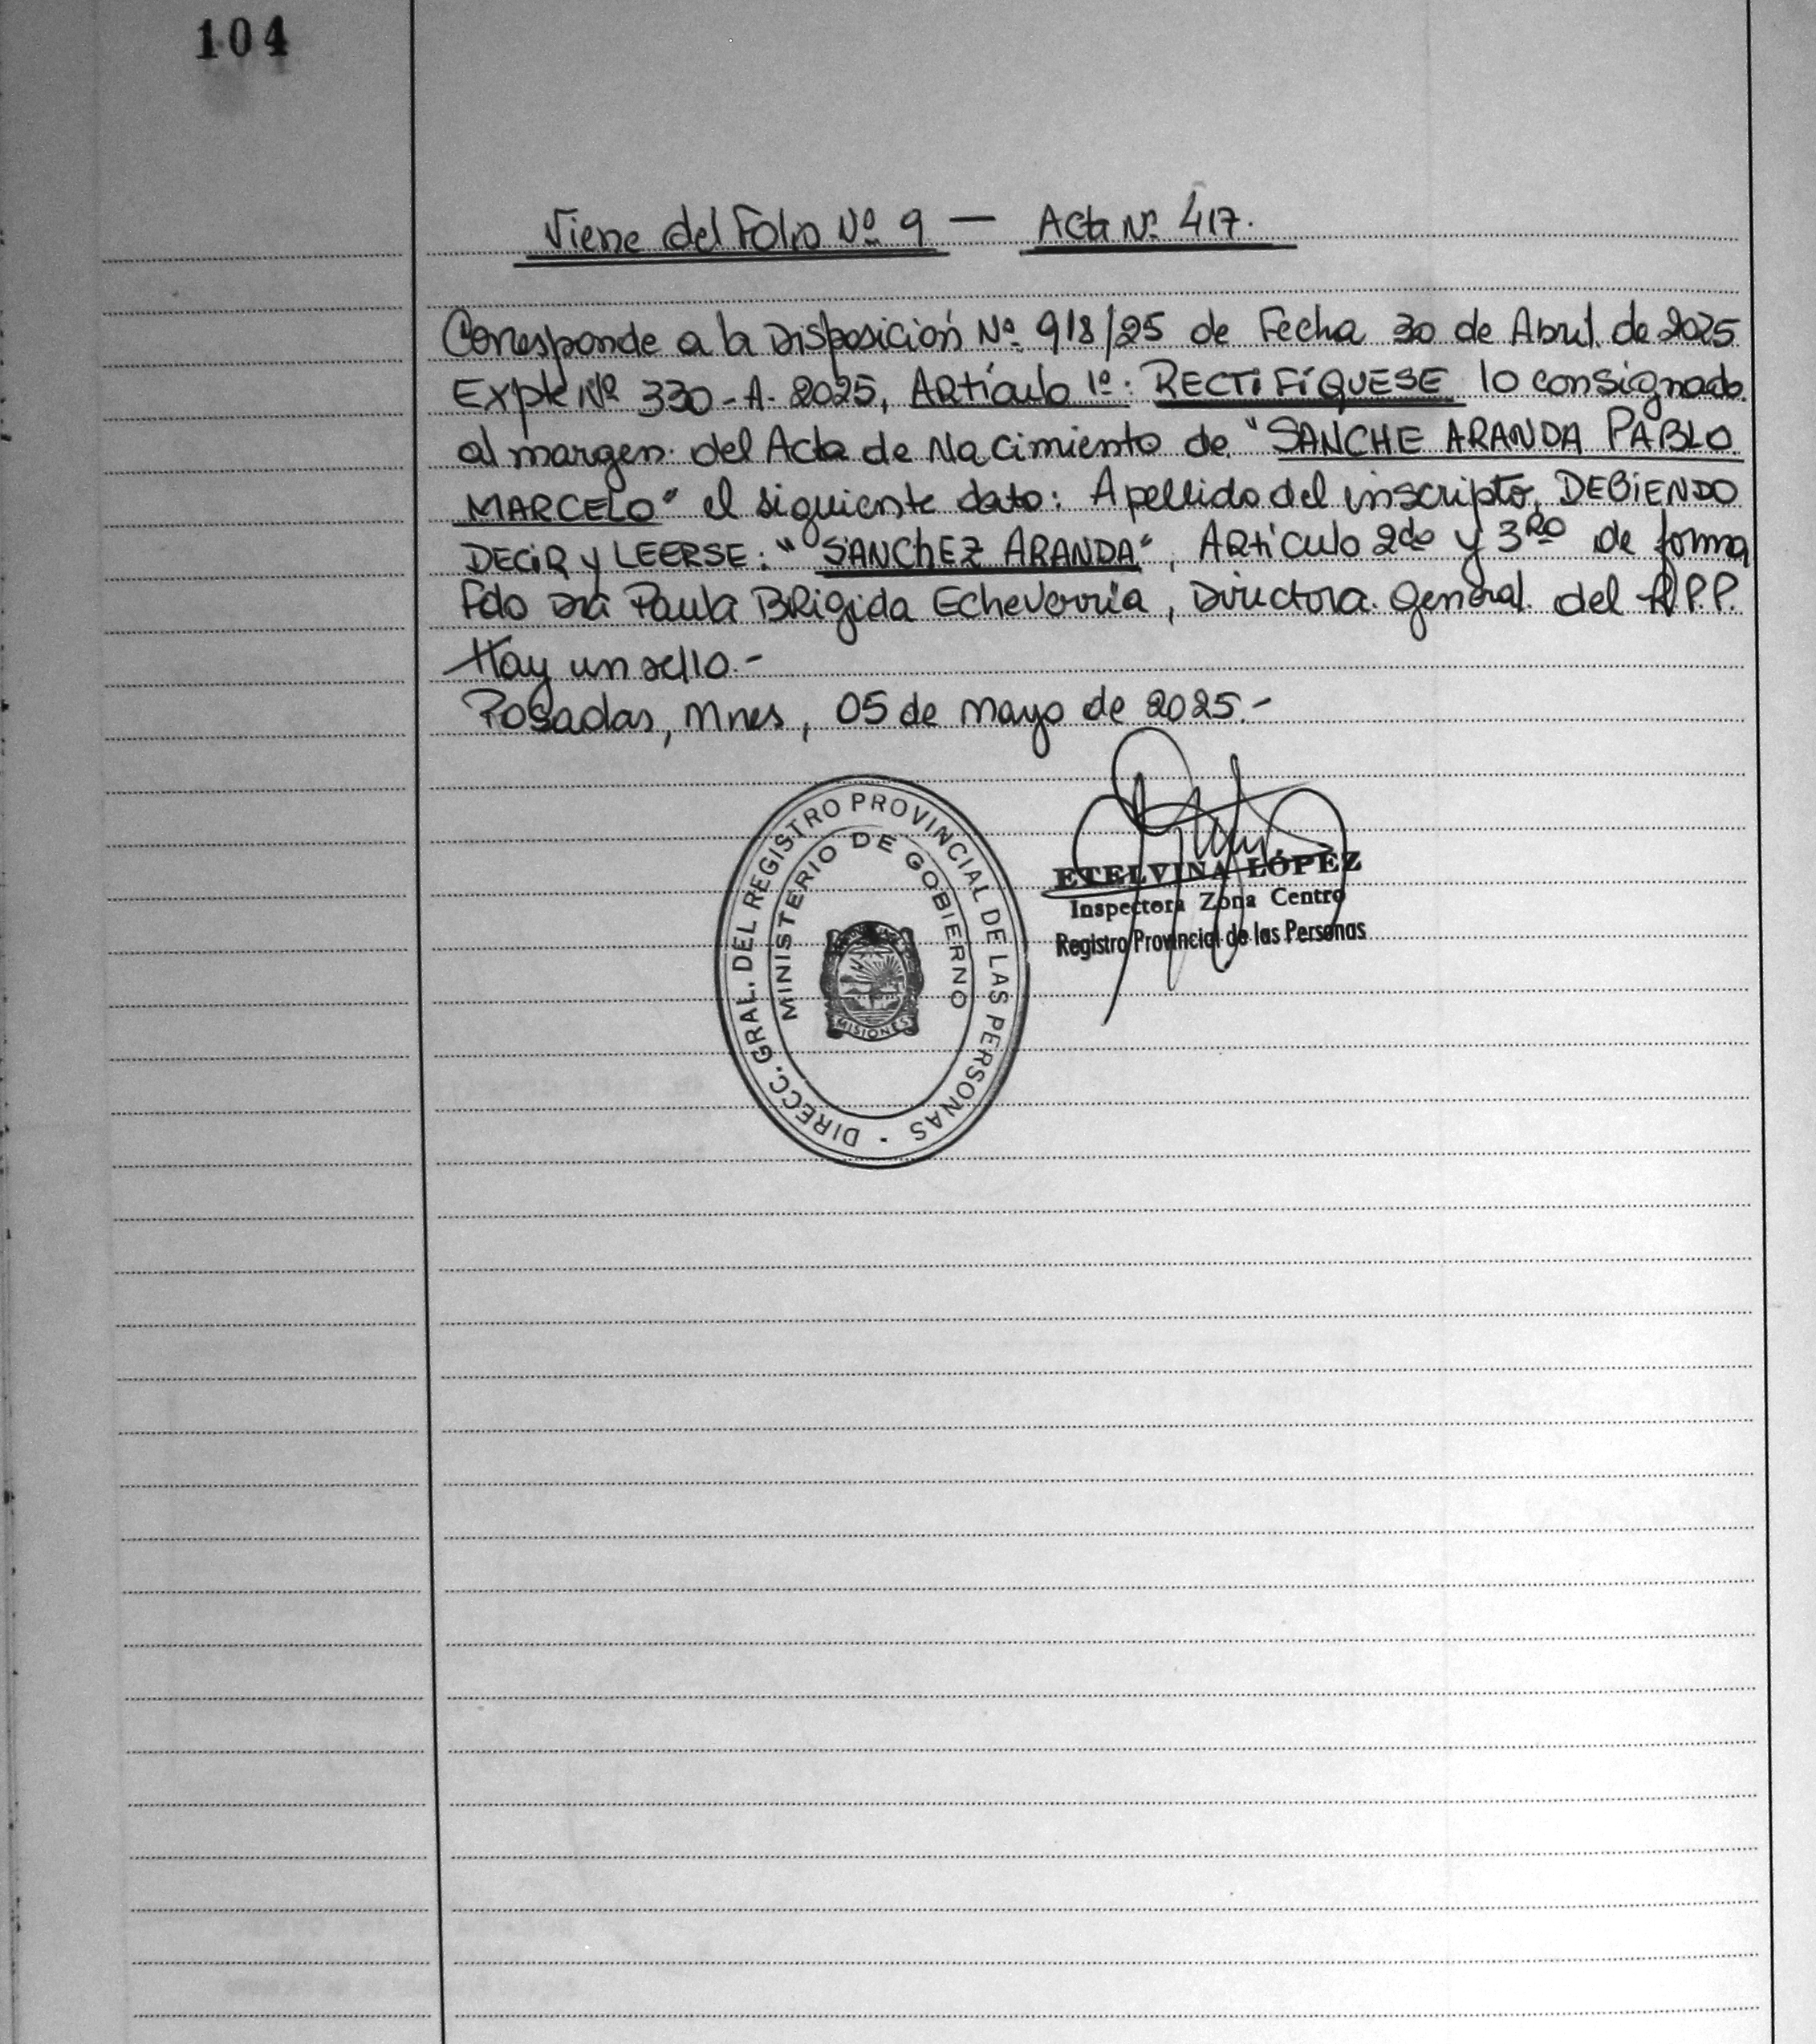 104
Viene del Folio Nº 9 — Acta Nº 417.
Corresponde a la Disposición Nº 918/25 de Fecha 30 de Abril de 2025
Expte Nº 330-A-2025, Artículo 1º: RECTIFÍQUESE lo consignado
al margen del Acta de Nacimiento de "SANCHE ARANDA PABLO
MARCELO" el siguiente dato: Apellido del inscripto, DEBIENDO
DECIR y LEERSE: "SANCHEZ ARANDA", Artículo 2do y 3RO de forma
Fdo Dra Paula BRigida Echeverría, Directora General del R.P.P.
Hay un sello.-
Posadas, Mnes, 05 de mayo de 2025.-
DIRECC. GRAL. DEL REGISTRO PROVINCIAL DE LAS PERSONAS -
MINISTERIO DE GOBIERNO
MISIONES
ETELVINA LÓPEZ
Inspectora Zona Centro
Registro Provincial de las Personas